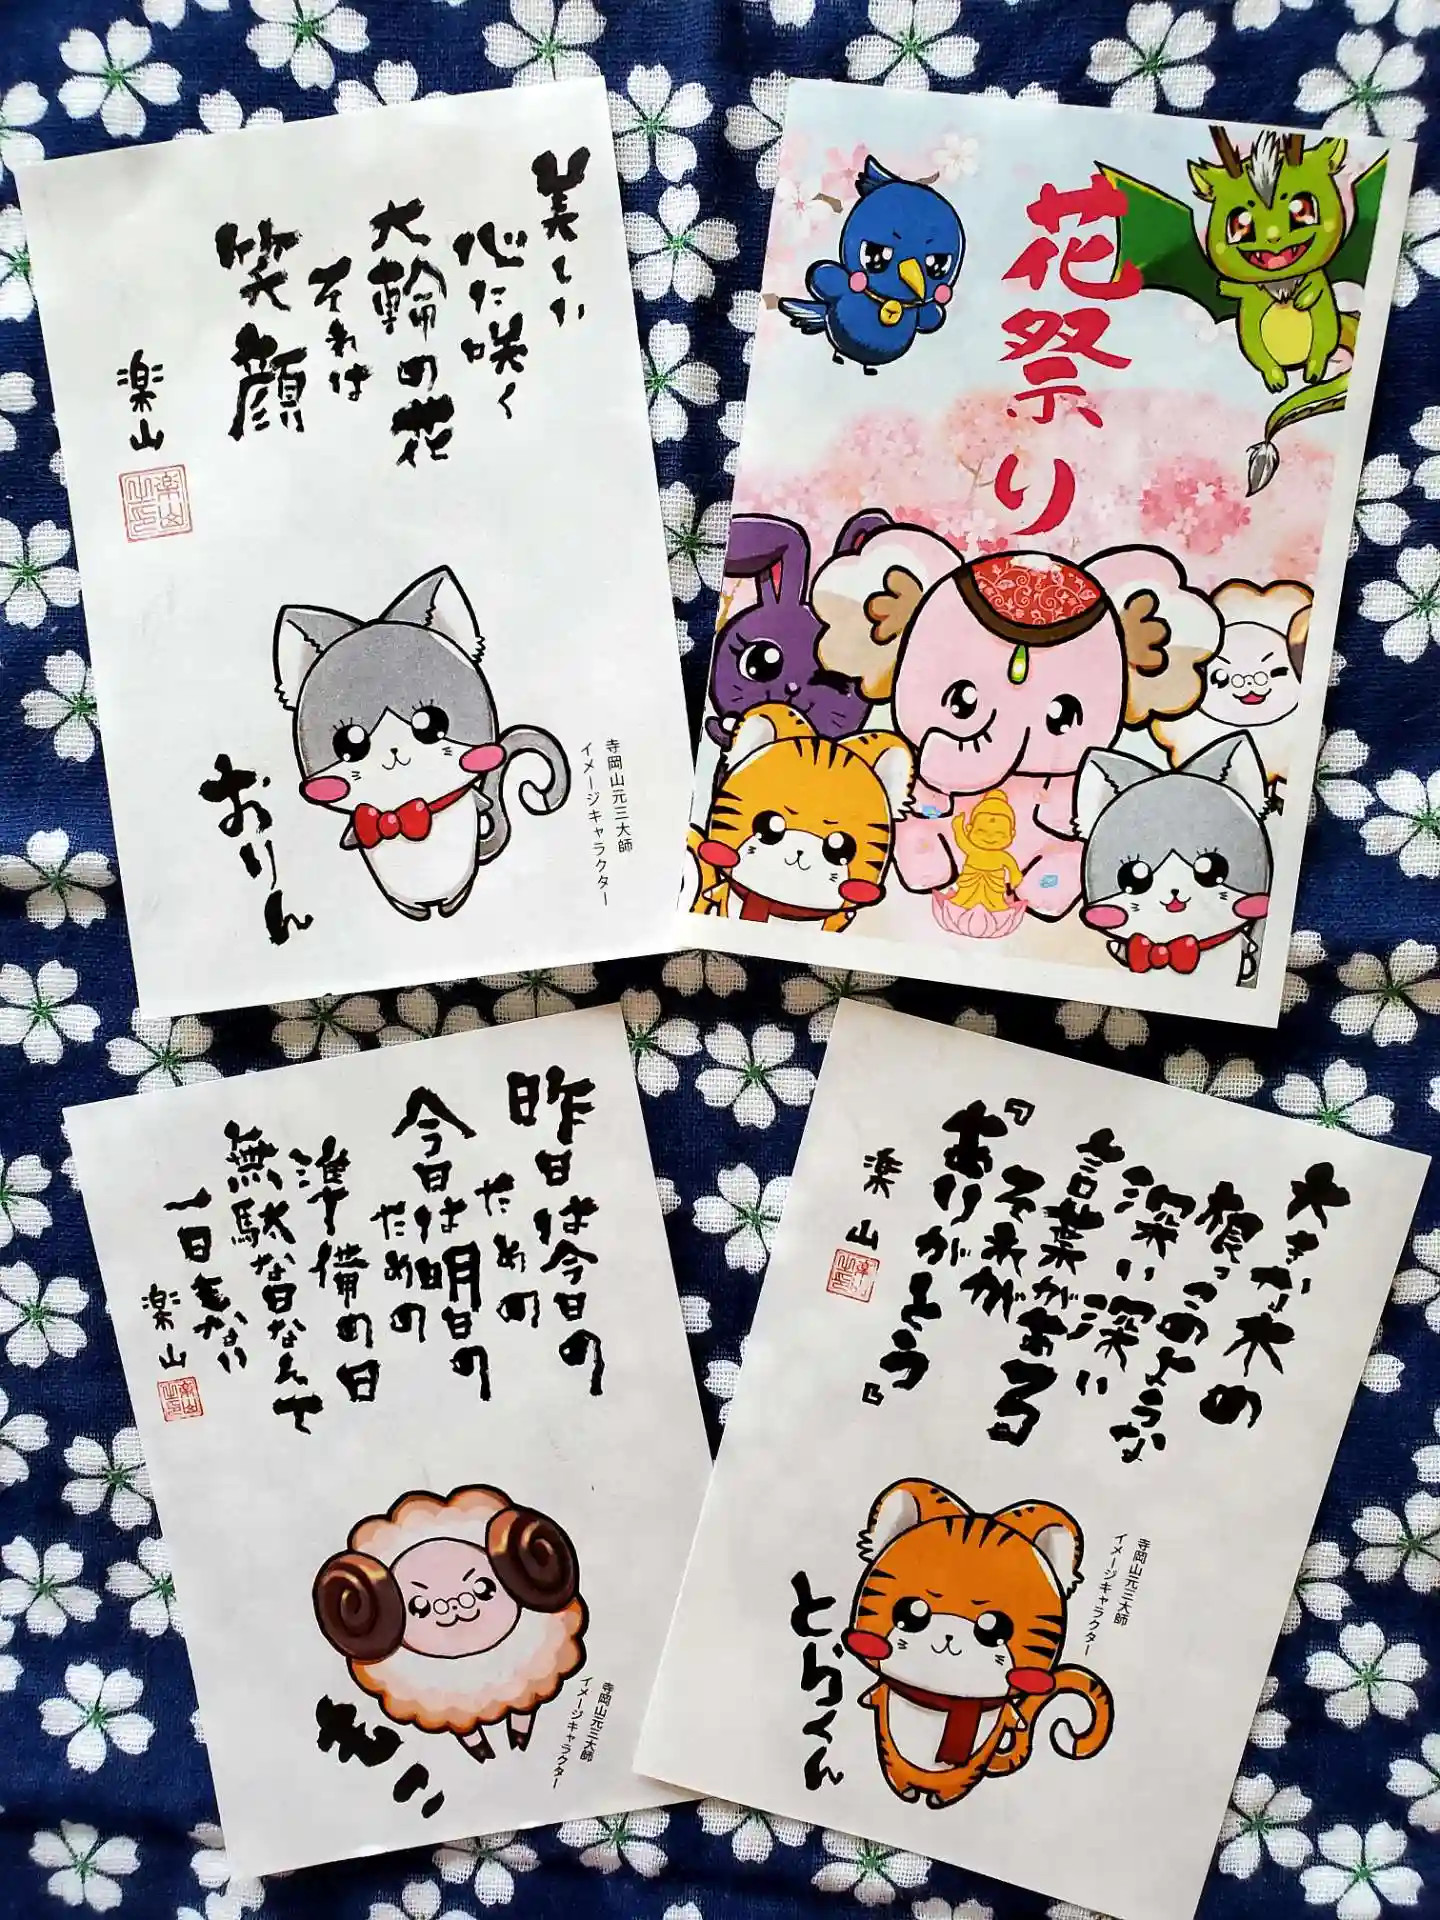 美しい
心に咲く
大輪の花
それは
笑顔
楽山
楽山之印
おりん
寺岡山元三大師
イメージキャラクター
花祭り
昨日は今日の
ための
今日は明日の
ための
準備の日
無駄な日なんて
一日もない
楽山
楽山之印
寺岡山元三大師
イメージキャラクター
大きな木の
根っこのような
深い深い
言葉がある
それが
『ありがとう』
楽山
楽山之印
とらくん
寺岡山元三大師
イメージキャラクター